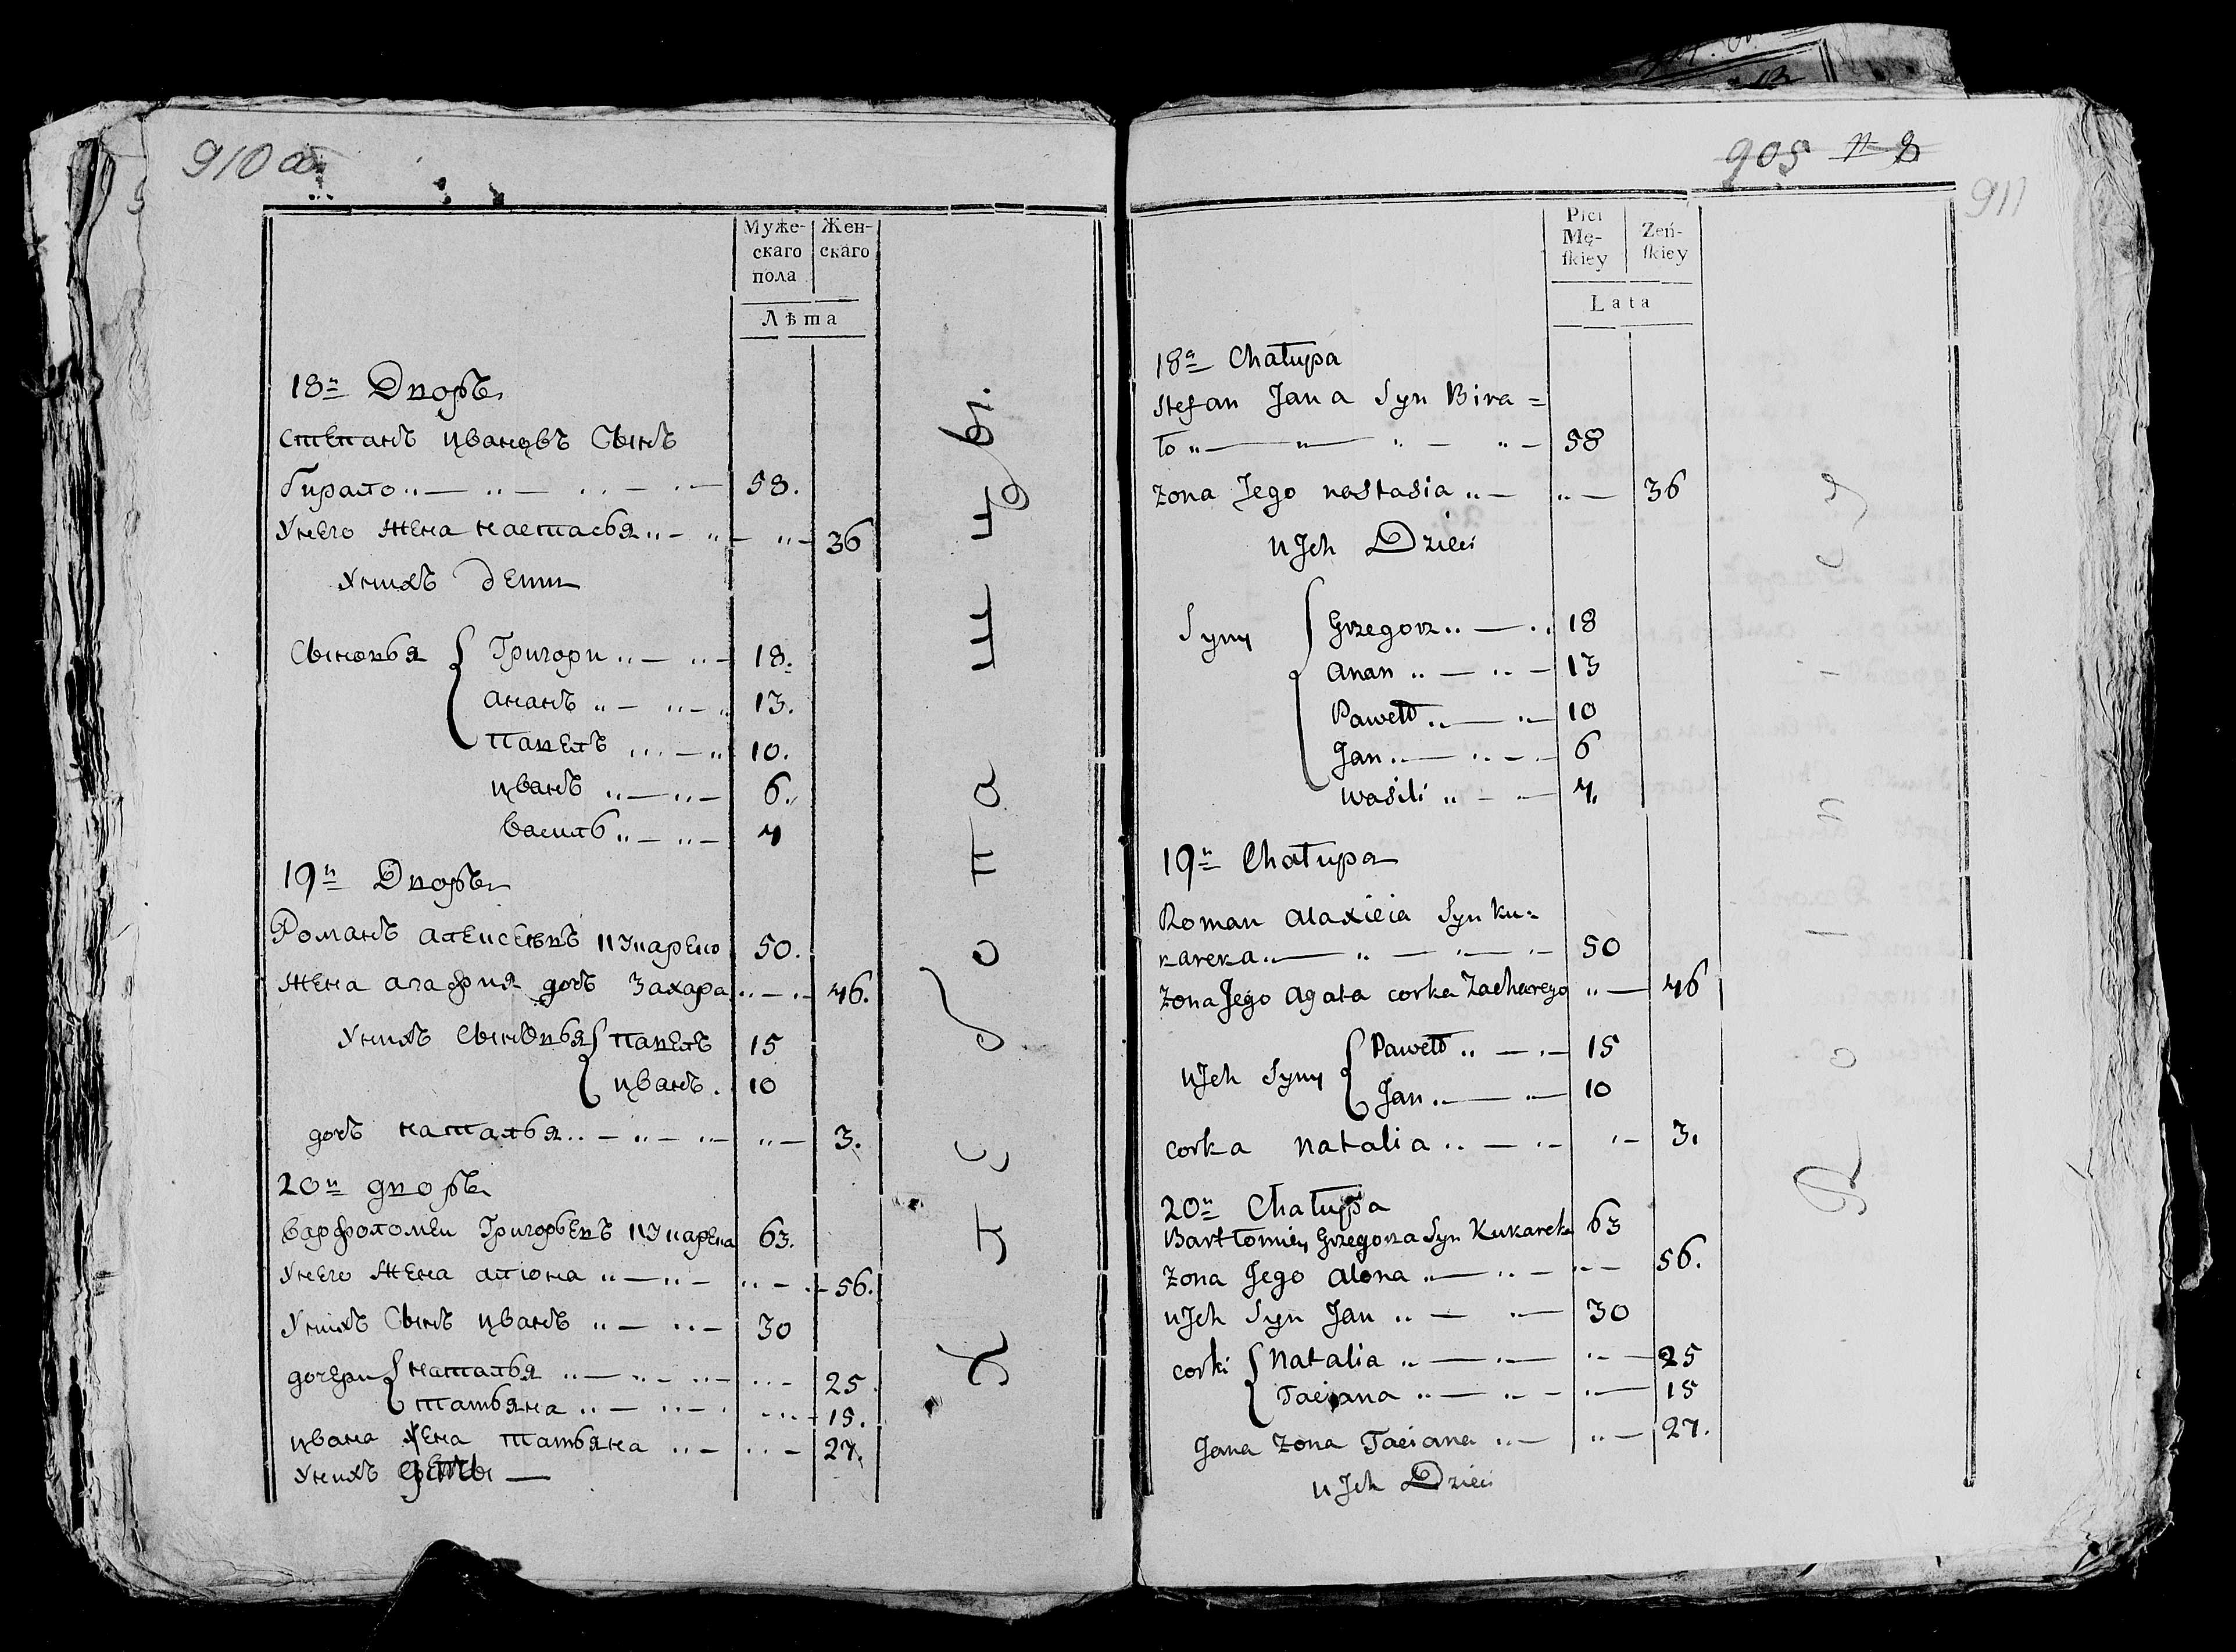 910 а
Муже-
скаго
пола
Жен-
скаго
Лѣта
18й Дворъ
Степанъ Ивановъ Сынъ
бирало „ — „ — „ — „ — 58.
Унего жена настасья „ — „ — „ — 36
Унихъ дети
Сыновья { Григори „ — „ — 18.
ананъ „ — „ — „ 13.
Павелъ „ — „ 10.
Иванъ „ — „ — 6.
Василь „ — „ — 4
19й Дворъ
Романъ алексеевъ кукареко 50.
жена агафия дочь Захара „ — „ 46.
Унихъ Сыновья { Павелъ 15
Иванъ . 10
дочь наталья „ — „ — „ — „ — 3.
20й дворъ
варфоломеи Григорьевъ кукарека 63.
Унего жена алiона „ — „ — „ — 56.
Унихъ Сынъ Иванъ „ — „ — 30
дочери { наталья „ — „ — „ — „ — 25.
татьяна „ — „ — „ — 15.
Ивана жена татьяна „ — „ — 27.
Унихъ дети —
Хлебопашцы.
905
911
Płci
Mę-
ſkiey
Żeń-
ſkiey
Lata
18a Chałupa
Stefan Jana Syn Bira =
ło „ — „ — „ — „ — 58
zona Jego nastasia „ — „ — 36
u Jch Dzieci
Syny { Grzegorz „ — „ 18
anan „ — „ — 13
Paweł „ — „ — 10
Jan „ — „ — 6
wasili „ — „ — 4.
19a Chałupa
Roman alaxieia Syn ku =
kareka „ — „ — „ — „ — 50
zona Jego agata corka Zacharego „ — 46
u Jch Syny { Paweł „ — „ — 15
Jan „ — „ — 10
corka natalia „ — „ — „ — 3.
20a Chałupa
Bartłomiey Grzegorza Syn Kukareka 63
zona Jego alona „ — „ — „ — 56.
u Jch Syn Jan „ — „ — 30
corki { Natalia „ — „ — „ — 25
Taciana „ — „ — „ — 15
Jana zona Taciana „ — „ — 27.
u Jch Dzieci
Rolnicy